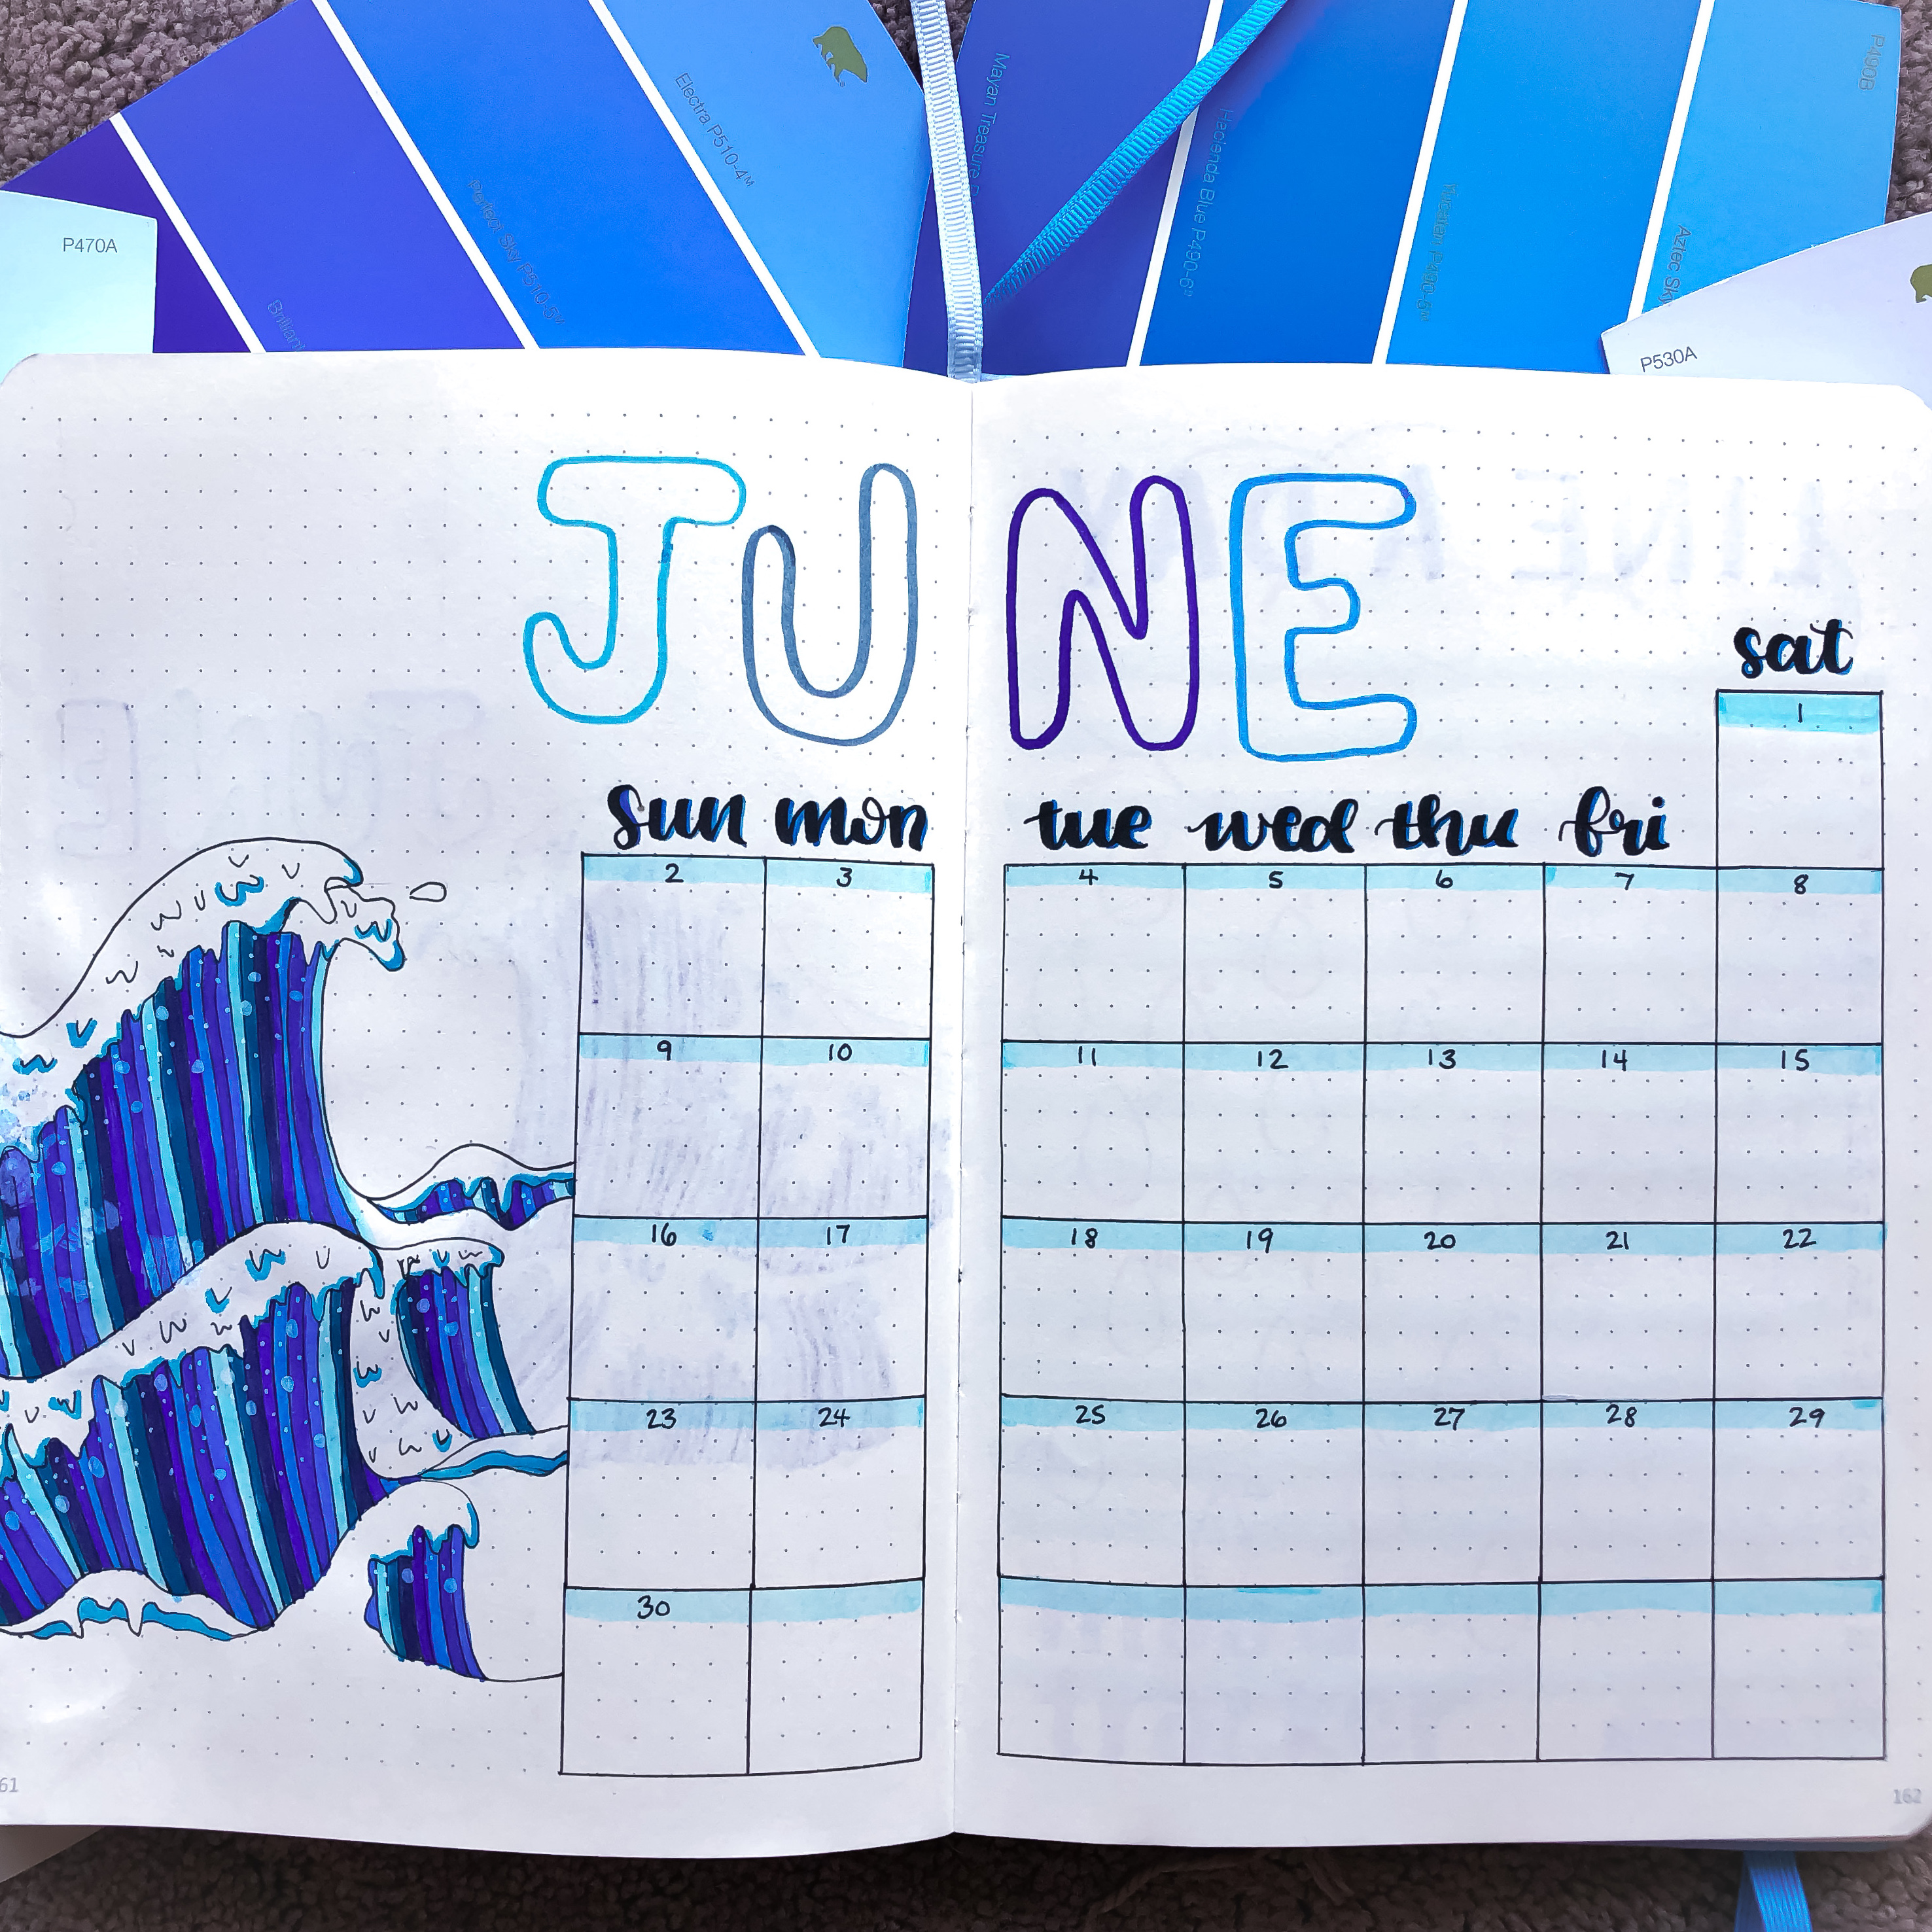 P470A
Brilliant
Perfect Sky P510-5
Electra P510-4
Mayan Treasure
Hacienda Blue P490-6
P490-5
Aztec Sky
P490B
P530A
JUNE
sat
1
sun mon tue wed thu fri
2 3 4 5 6 7 8
9 10 11 12 13 14 15
16 17 18 19 20 21 22
23 24 25 26 27 28 29
30
61
162